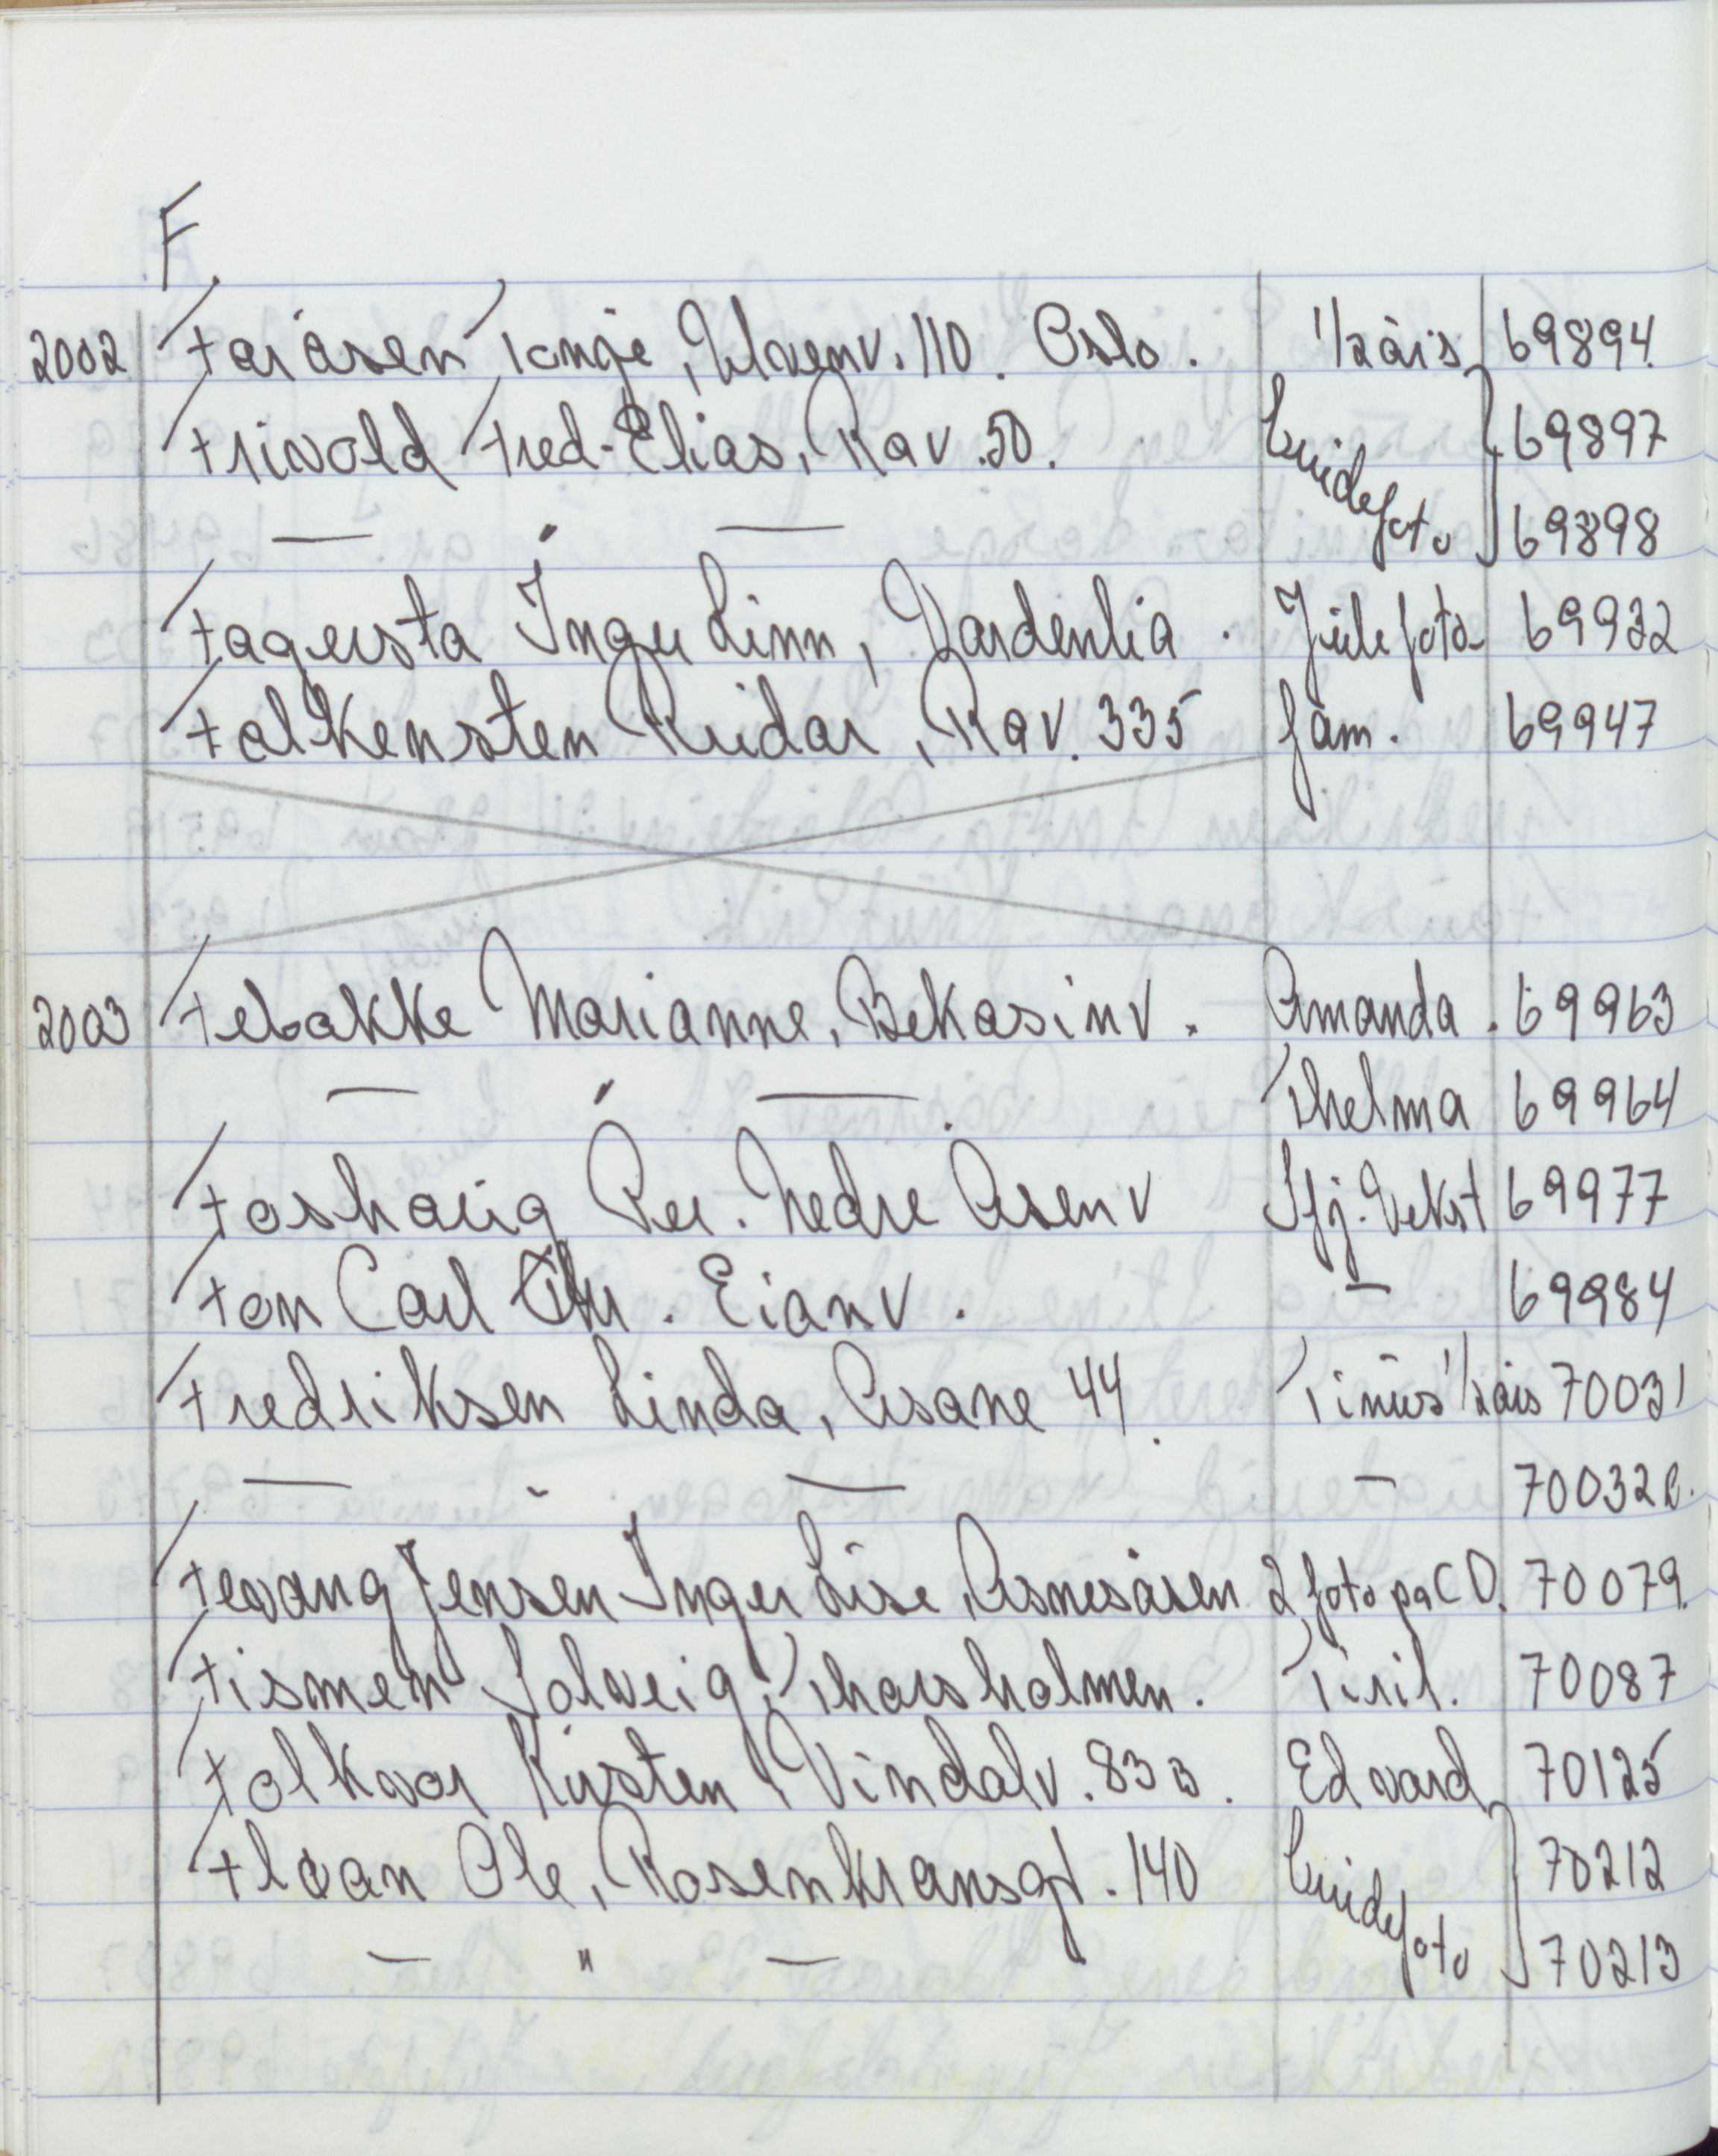 F.
2002 Faråsen Tonje, Ulvenv. 110. Oslo. 1/2 års 69894.
Frivold Fred-Elias, Rav. 50. Brudefoto 69897
— " — 69898
Fagersta Inger Linn, Vardenlia. Julefoto 69932
Falkensten Reidar, Rav. 335 fam. 69947
2003 Febakke Marianne, Bekasinv. Amanda. 69963
— " — Thelma 69964
Foshaug Per. Nedre Åsenv Sfj. Vekst 69977
Fon Carl Chr. Eianv. — 69984
Fredriksen Linda, Åsane 44. Tinius 1/2 års 70031
— " — — 70032 B.
Fevang Jensen Inger Lise, Åsnesåsen 2 foto på CD. 70079.
Fismen Solveig, Thorsholmen. Tiril. 70087
Folkvor Kirsten, Vindalv. 83 B. Edvard 70125
Floan Ole, Rosenkransgt. 140 Brudefoto 70212
— " — 70213